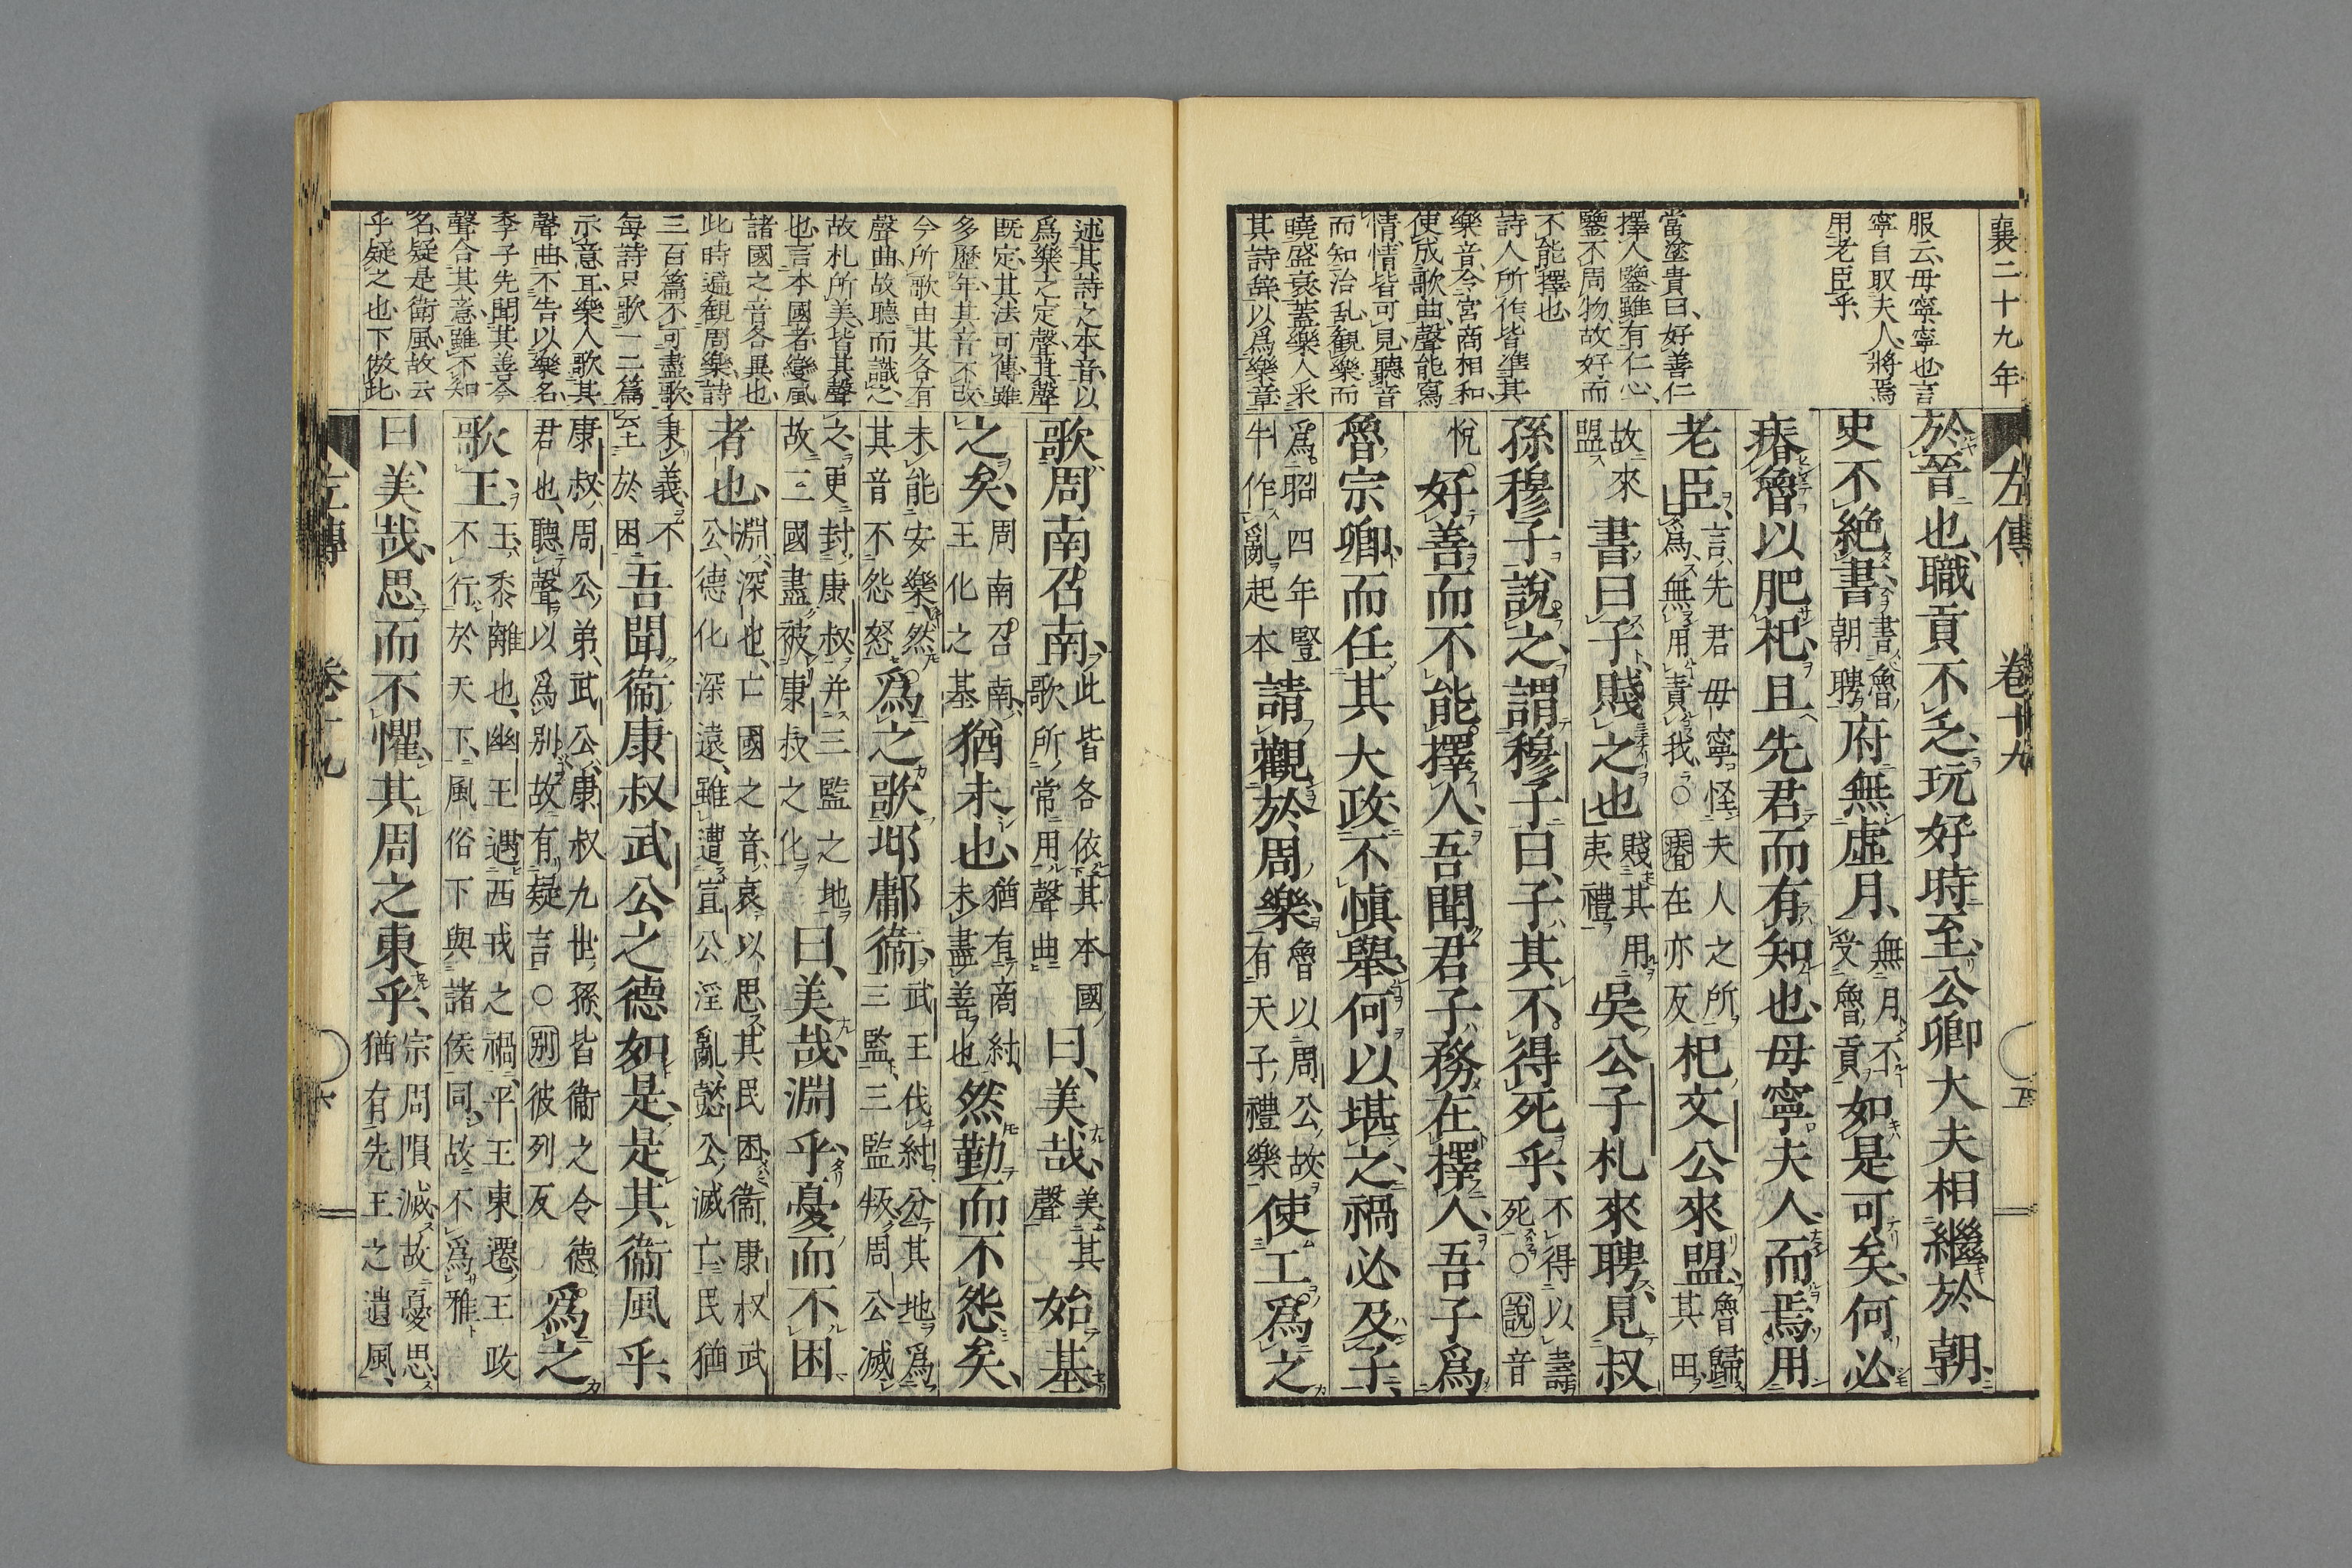 襄二十九年
左傳 卷十九 五
服云毋寧寧也言
寧自取夫人將焉
用老臣乎
當塗貴曰好善仁
擇人鑒雖有仁心
鑒不周物故好而
不能擇也
詩人所作皆準其
樂音令宮商相和
使成歌曲聲能寫
情情皆可見聽音
而知治乱観樂而
曉盛衰蓋樂人采
其詩辞以爲樂章
於晉也職貢不乏玩好時至公卿大夫相繼於朝
史不絶書書魯朝聘府無虛月無月不受魯貢如是可矣何必
瘠魯以肥杞且先君而有知也毋寧夫人而焉用
老臣言先君毋寧怪夫人之所爲無用責我○瘠在亦反杞文公來盟魯歸其田
故來盟書曰子賤之也賤其用夷禮吳公子札來聘見叔
孫穆子說之謂穆子曰子其不得死乎不得以壽死○說音
悅好善而不能擇人吾聞君子務在擇人吾子爲
魯宗卿而任其大政不慎舉何以堪之禍必及子
爲昭四年豎牛作亂起本請觀於周樂魯以周公故有天子禮樂使工爲之
述其詩之本音以
爲樂之定聲其聲
既定其法可傳雖
多歷年其音不改
今所歌由其各有
聲曲故聽而識之
故札所美皆其聲
也言本國者變風
諸國之音各異也
此時遍観周樂詩
三百篇不可盡歌
每詩只歌一二篇
示意耳樂人歌其
聲曲不告以樂名
季子先聞其善今
聲合其意雖不知
名疑是衛風故云
乎疑之也下倣此
歌周南召南此皆各依其本國歌所常用聲曲曰美哉美其聲始基
之矣周南召南王化之基猶未也猶有商紂未盡善也然勤而不怨矣
未能安樂然其音不怨怒爲之歌邶鄘衞武王伐紂分其地爲三監三監叛周公滅
之更封康叔并三監之地故三國盡被康叔之化曰美哉淵乎憂而不困
者也淵深也亡國之音哀以思其民困衞康叔武公德化深遠雖遭宣公淫亂懿公滅亡民猶
秉義不至於困吾聞衞康叔武公之德如是是其衞風乎
康叔周公弟武公康叔九世孫皆衞之令德君也聽聲以爲別故有疑言○別彼列反爲之
歌王王黍離也幽王遇西戎之禍平王東遷王政不行於天下風俗下與諸侯同故不爲雅
曰美哉思而不懼其周之東乎宗周隕滅故憂思猶有先王之遺風
左傳 卷十九 六